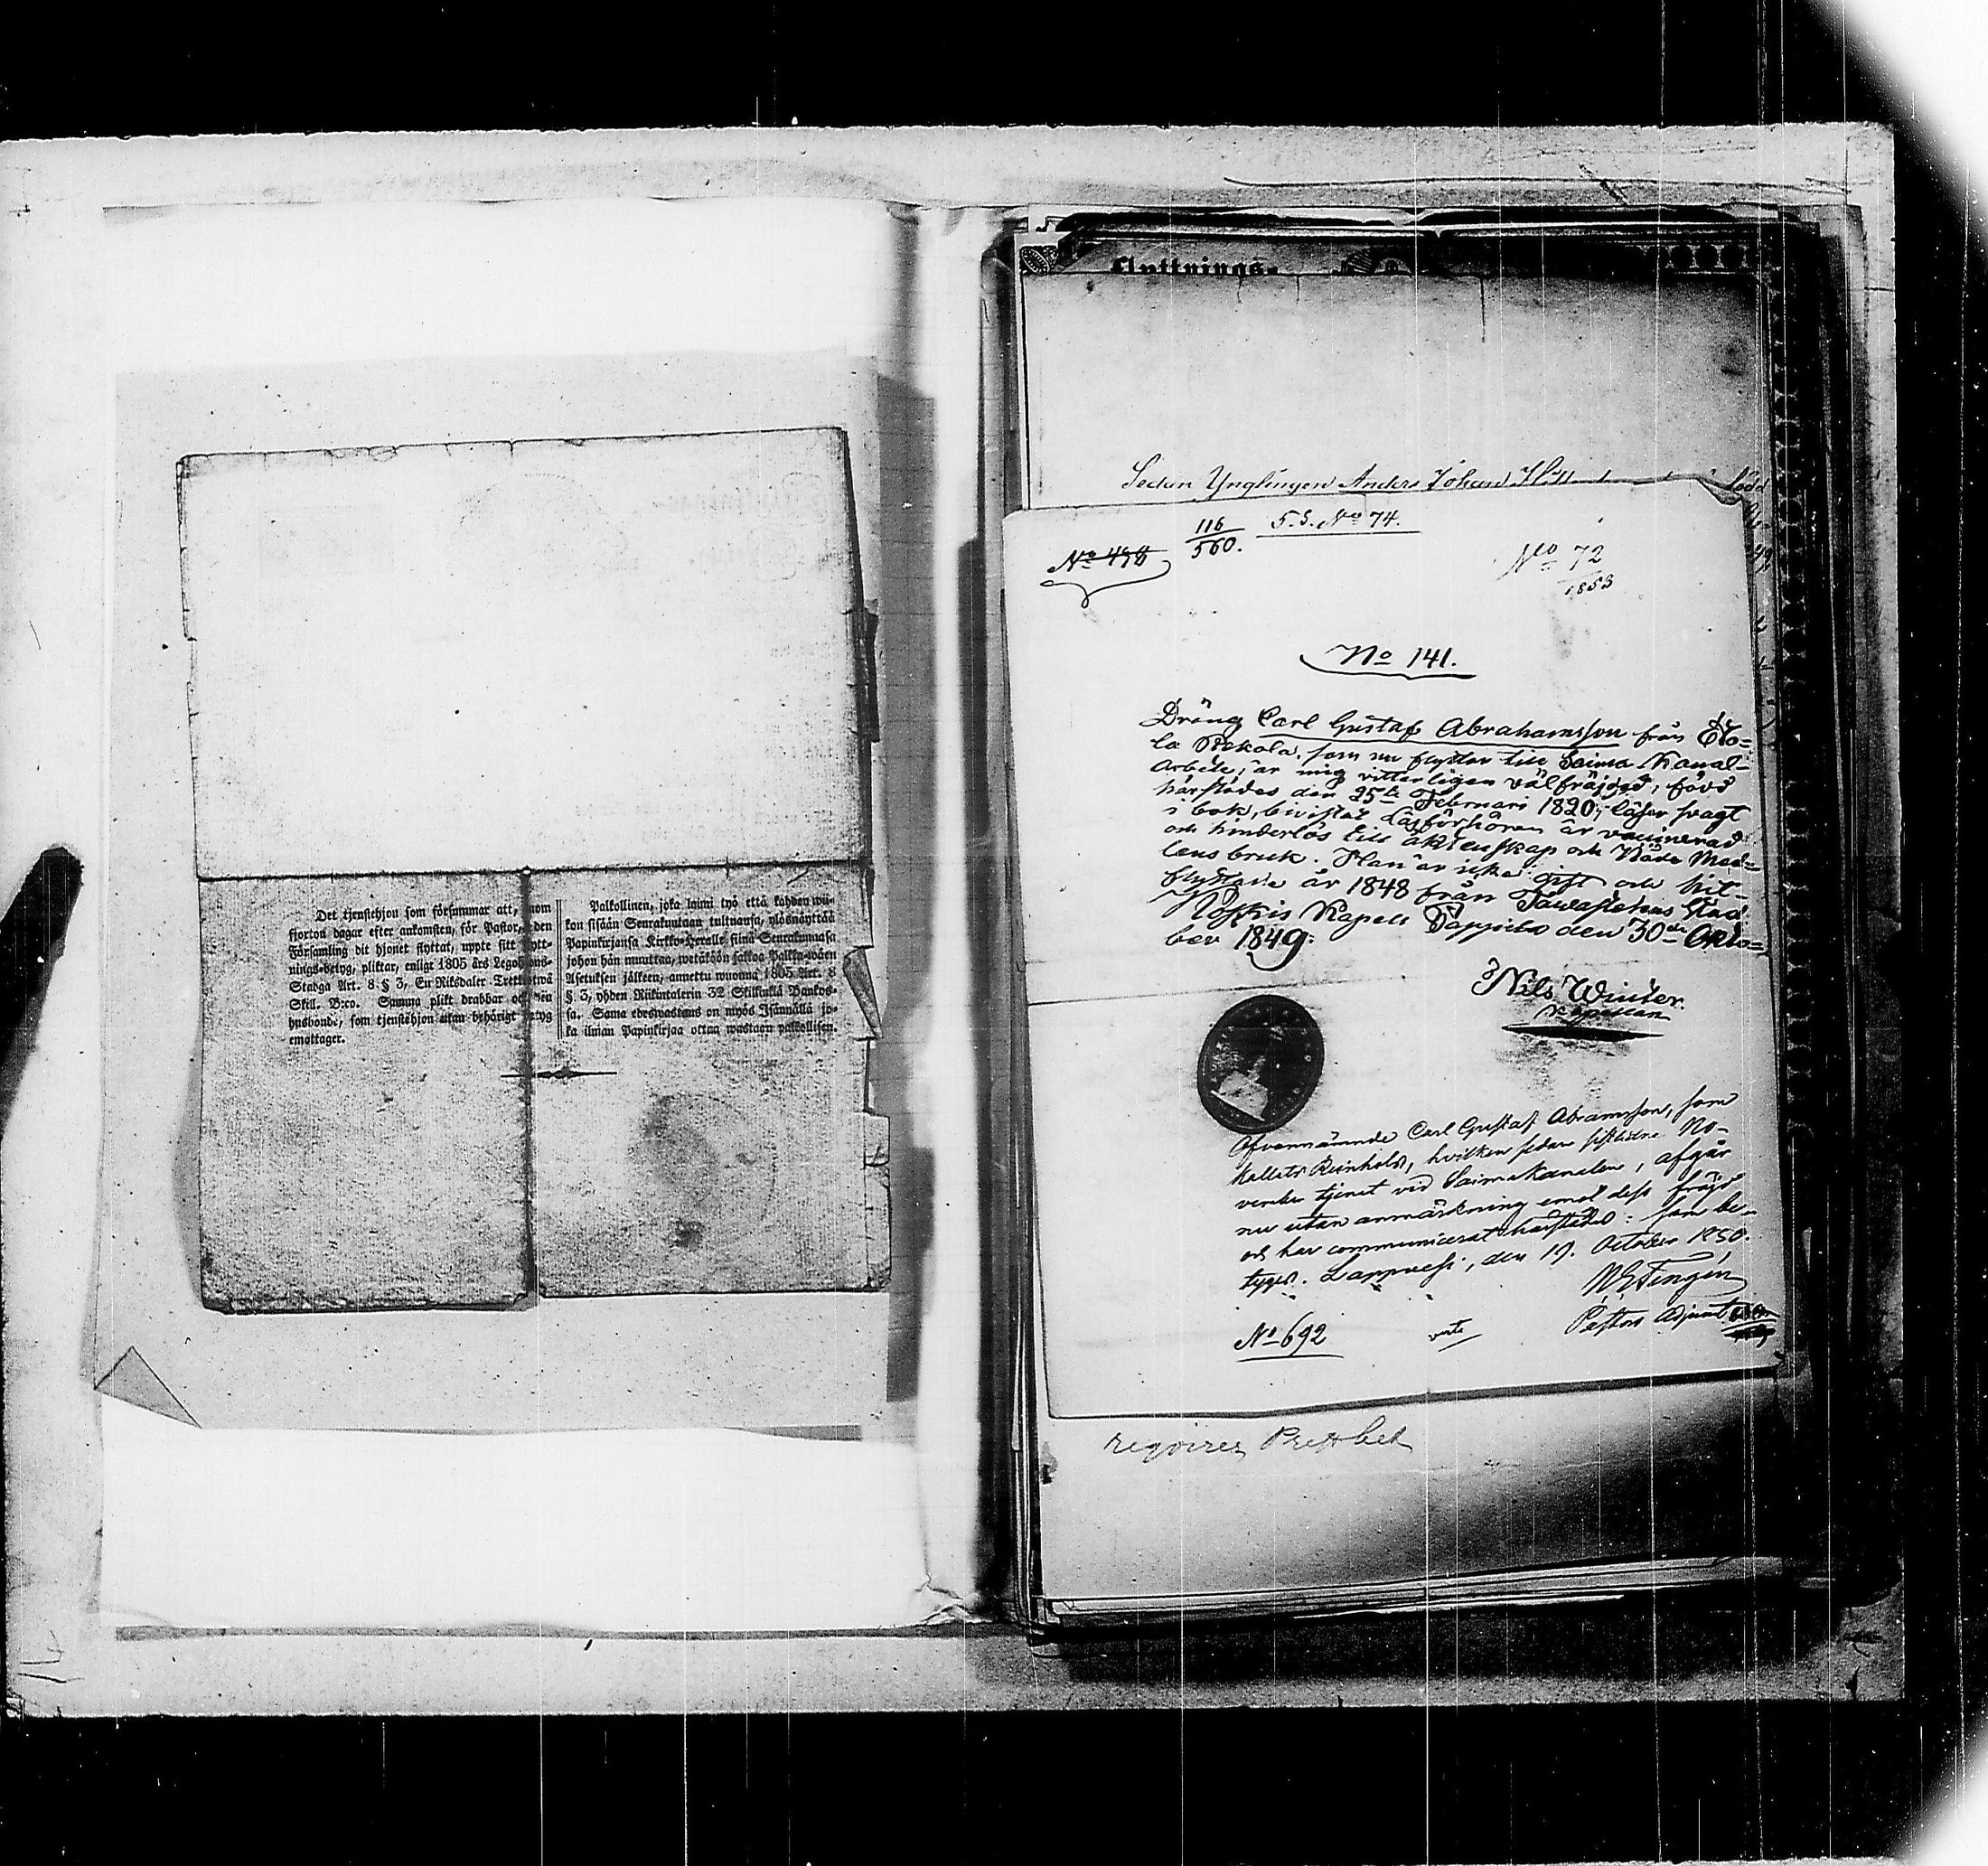 Det tjenstehjon som försummar att, inom
fjorton dagar efter ankomsten, för Pastor, i den
Församling dit hjonet flyttat, uppte sitt Flytt-
nings-betyg, pliktar, enligt 1805 års Legohjons-
Stadga Art. 8 § 3, En Riksdaler Trettiotwå
Skill. B:co. Samma plikt drabbar ock den
husbonde, som tjenstehjon utan behörigt betyg
emottager.
Palkollinen, joka laimi lyö että kahden wii-
kon sisään Seurakuntaan tultuansa, ylösnäyttää
Papinkirjansa Kirkko-Herralle siinä Seurakunnasa
johon hän muuttaa, wetäköön sakkoa Palkka-wäen
Asetuksen jälkeen, annettu wuonna 1805 Art. 8
§. 3, yhden Riikintalerin 32 Skillinkiä Bankos-
sa. Sama edeswastaus on myös Isännällä jo-
ka ilman Papinkirjaa ottaa wastaan palkollisen.
Flyttnings-
Sedan Ynglingen Anders Johan
No 498
116
560.
5.S. No 74.
No 72
1853
No 141.
Dräng Carl Gustaf Abrahamsson från Eto=
la Rekola, som nu flyttar till Saima Kanal-
Arbete, är mig vitterligen välfräjdad, född
härstädes den 25te Februari 1820, läser svagt
i bok, bivistat Läsförhören är vaccinerad
och hinderlös till äktenskap och Nåde Med-
lens bruk. Han är icke gift och hit-
flyttade år 1848 från Tawastehus Stad.
Kapell den 30de Okto=
ber 1849:
Nils Winter.
Kapellan
Ofvannämnde Carl Gustaf Abramsson, som
kallats Reinhold, hvilken sedan sistledne No-
vember tjent vid Saima Kanalen, afgår
nu utan anmärkning emot dess fräjd
och har communicerat härstädes: som be-
tygas. Lappvesi, den 19. October 1850.
Pastors Adjunct
No 692
verte